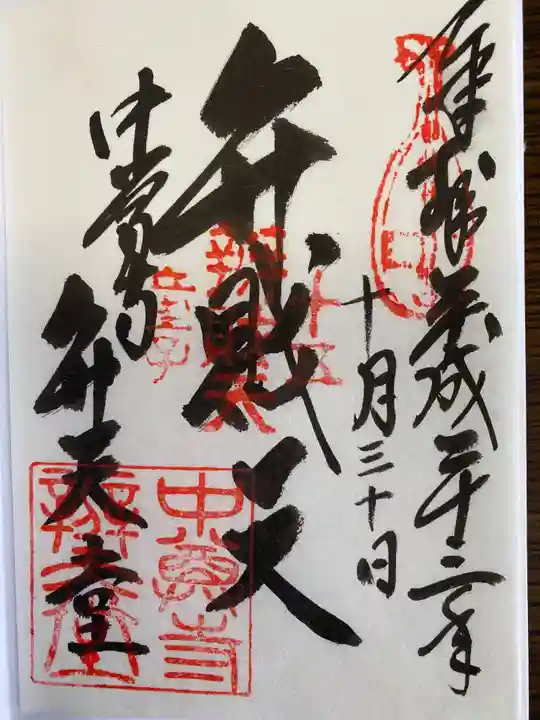 奉拝 平成二十三年
十月三十日
弁財天
中尊寺
弁天堂
中尊寺
辨天堂